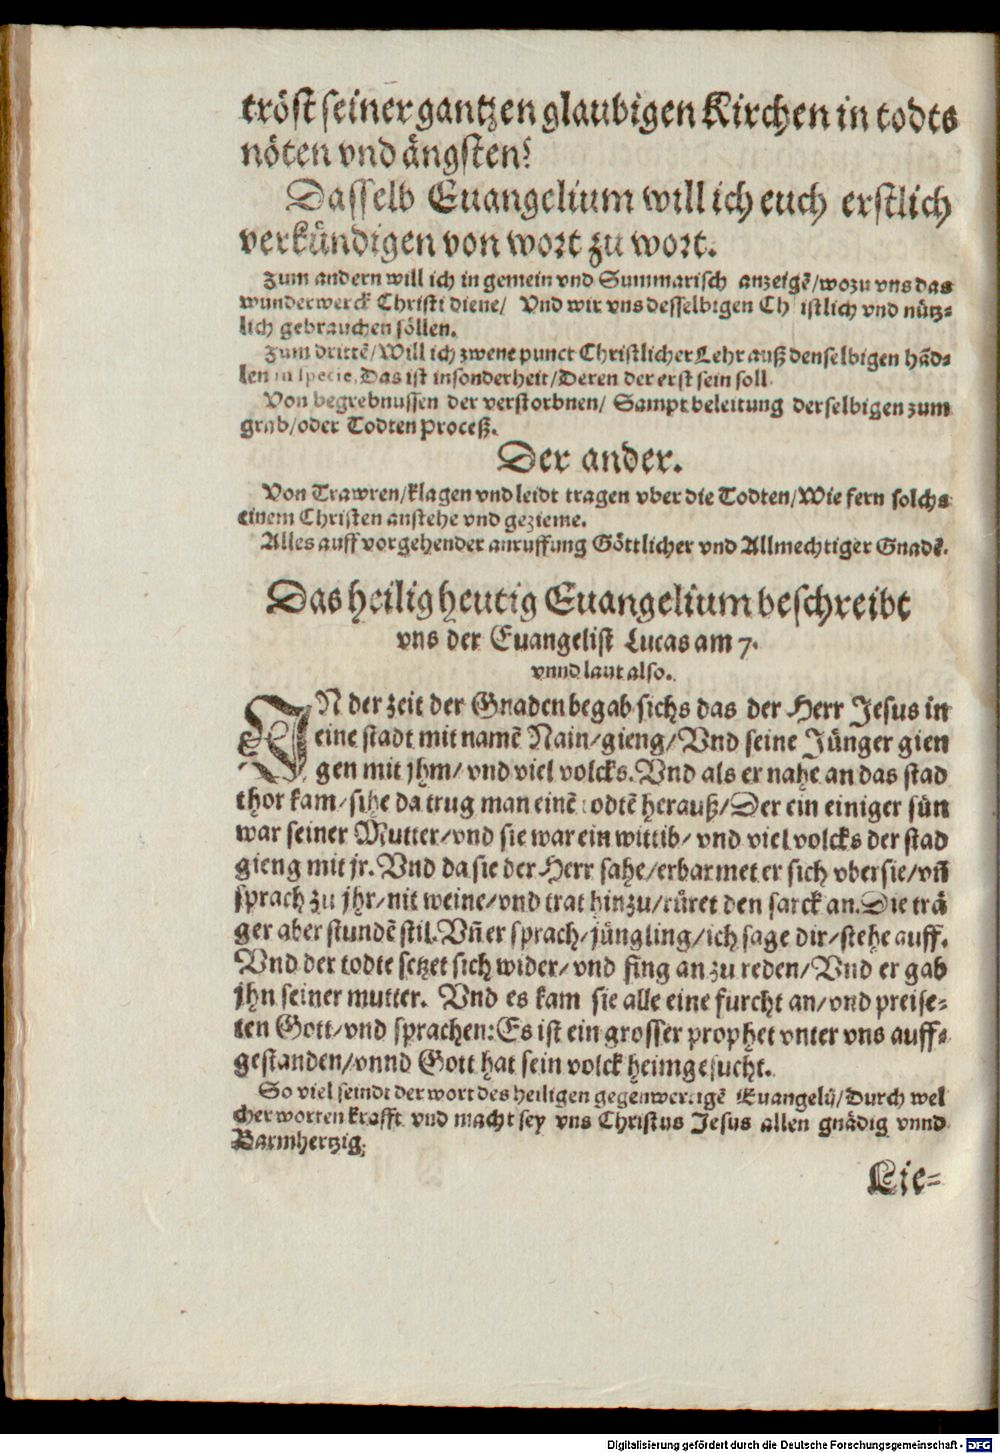 tröst seiner gantzen glaubigen Kirchen in todts
nöten vnd ängsten?
Dasselb Euangelium will ich euch erstlich
verkündigen von wort zu wort.
Zum andern will ich in gemein vnd Summarisch anzeigẽ/wozu vns das
wunderwerck Christi diene/ Vnd wir vns desselbigen Ch istlich vnd nütz=
lich gebrauchen söllen.
Zum drittẽ/Will ich zwene punct Christlicher Lehr auß denselbigen hãd=
len in specie, Das ist insonderheit/Deren der erst sein soll
Von begrebnussen der verstorbnen/ Sampt beleitung derselbigen zum
grab/oder Todten Proceß.
Der ander.
Von Trawren/klagen vnd leidt tragen vber die Todten/Wie fern solchs
einem Christen anstehe vnd gezieme.
Alles auff vorgehender anruffung Göttlicher vnd Allmechtiger Gnadẽ.
Das heilig heutig Euangelium beschreibt
vns der Euangelist Lucas am 7.
vnnd laut also.
IN der zeit der Gnaden begab sichs das der Herr Jesus in
eine stadt mit namẽ Nain/gieng/Vnd seine Jünger gien
gen mit jhm/ vnd viel volcks. Vnd als er nahe an das stad
thor kam/sihe da trug man einẽ todtẽ herauß/Der ein einiger sün
war seiner Mutter/vnd sie war ein wittib/ vnd viel volcks der stad
gieng mit jr. Vnd da sie der Herr sahe/erbarmet er sich vber sie/vñ
sprach zu jhr/nit weine/vnd trat hinzu/rüret den sarck an. Die trä
ger aber stundẽ stil. Vñ er sprach/jüngling/ich sage dir/stehe auff.
Vnd der todte setzet sich wider/ vnd fing an zu reden/Vnd er gab
jhn seiner mutter. Vnd es kam sie alle eine furcht an/vnd preise=
ten Gott/vnd sprachen: Es ist ein grosser prophet vnter vns auff=
gestanden/vnnd Gott hat sein volck heimgesucht.
So viel seindt der wort des heiligen gegenwertigẽ Euangelij/Durch wel
cher worten krafft vnd macht sey vns Christus Jesus allen gnädig vnnd
Barmhertzig.
Lie=
Digitalisierung gefördert durch die Deutsche Forschungsgemeinschaft - DFG